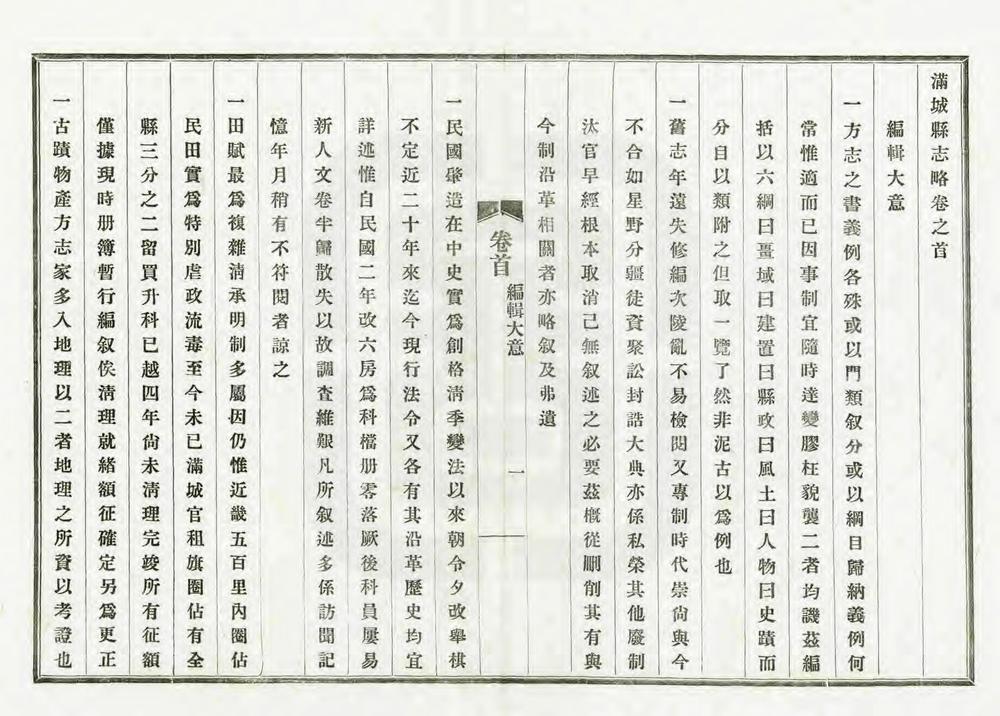 滿城縣志略卷之首
編輯大意
一方志之書義例各殊或以門類叙分或以綱目歸納義例何
常惟適而已因事制宜隨時達變膠柱貌襲二者均譏茲編
括以六綱曰畺域曰建置曰縣政曰風土曰人物曰史蹟而
分自以類附之但取一覽了然非泥古以爲例也
一舊志年遠失修編次陵亂不易檢閱又專制時代崇尙與今
不合如星野分疆徒資聚訟封誥大典亦係私榮其他廢制
汰官早經根本取消己無叙述之必要茲槪從刪削其有與
今制沿革相關者亦略叙及弗遺
卷首
編輯大意
一
一民國肇造在中史實爲創格淸季變法以來朝令夕改舉棋
不定近二十年來迄今現行法令又各有其沿革歷史均宜
詳述惟自民國二年改六房爲科檔册零落厥後科員屢易
新人文卷半歸散失以故調查維艱凡所叙述多係訪聞記
憶年月稍有不符閱者諒之
一田賦最爲複雜淸承明制多屬因仍惟近畿五百里內圈佔
民田實爲特別虐政流毒至今未已滿城官租旗圈佔有全
縣三分之二留買升科已越四年尙未淸理完竣所有征額
僅據現時册簿暫行編叙俟淸理就緒額征確定另爲更正
一古蹟物產方志家多入地理以二者地理之所資以考證也